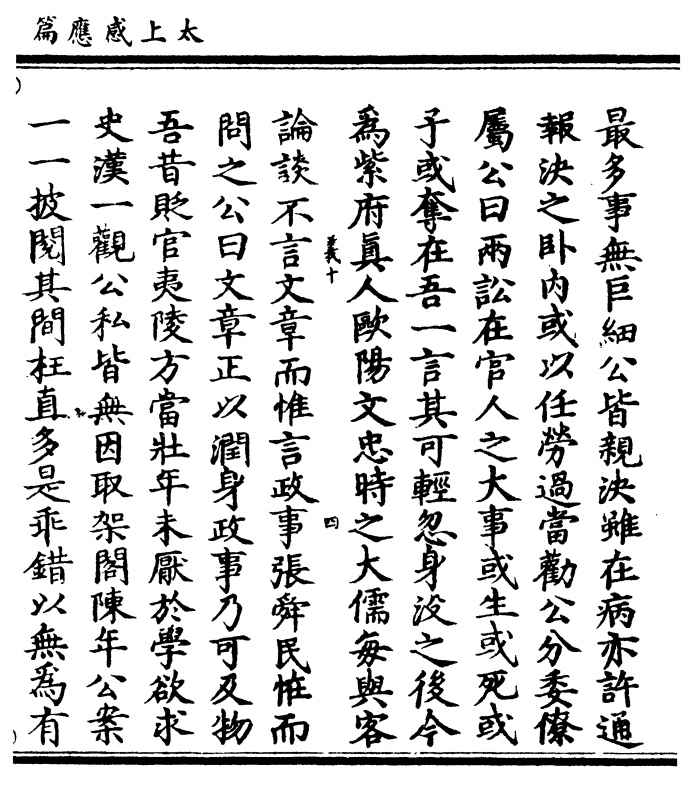 太上感應篇
最多事無巨細公皆親決雖在病亦許通
報決之卧内或以任勞過當勸公分委僚
屬公曰兩訟在官人之大事或生或死或
予或奪在吾一言其可輕忽身没之後今
爲紫府眞人歐陽文忠時之大儒每與客
義十
四
論談不言文章而惟言政事張舜民恠而
問之公曰文章正以潤身政事乃可及物
吾昔貶官夷陵方當壯年未厭於學欲求
史漢一觀公私皆無因取架閣陳年公案
一一披閱其間枉直多是乖錯以無爲有